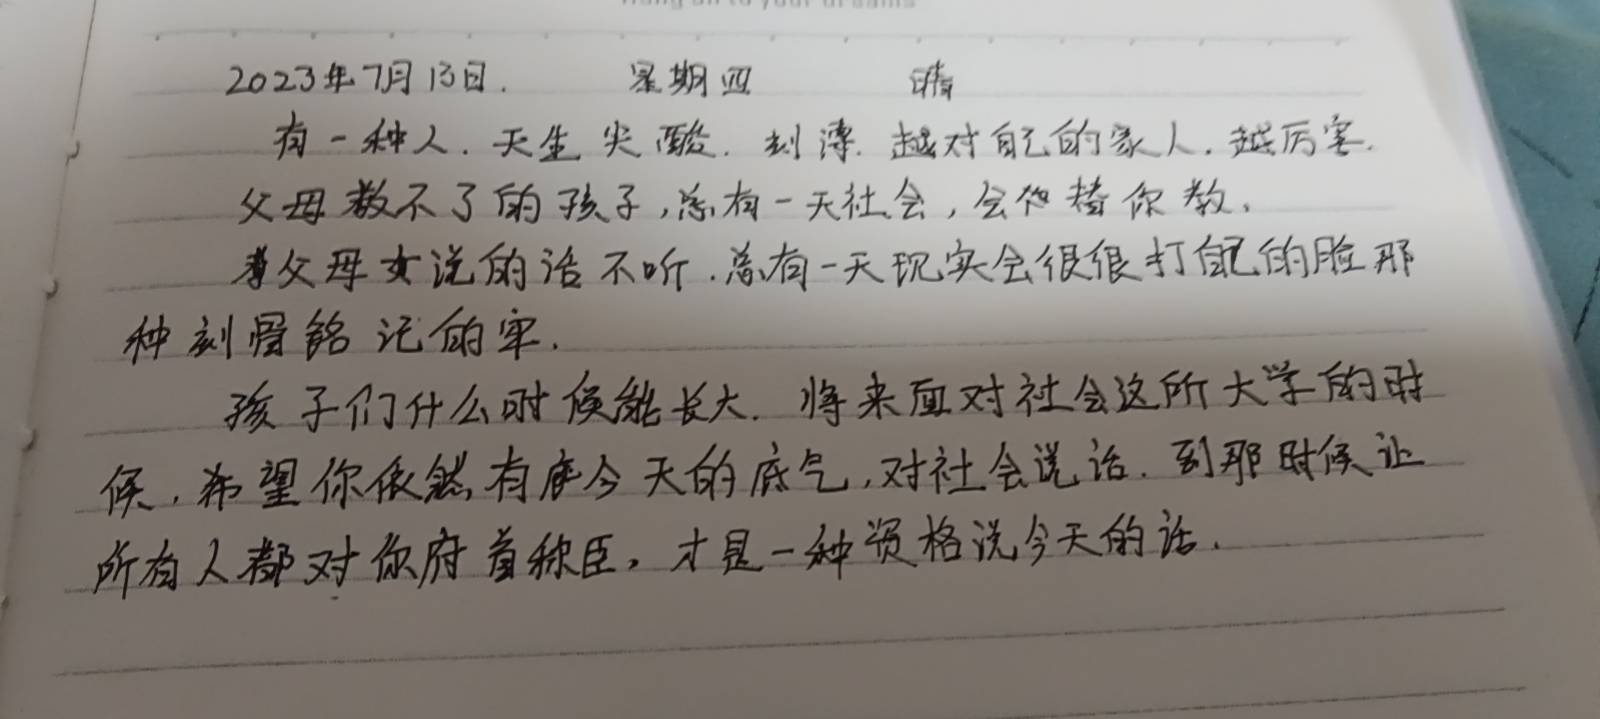 2023年7月13日. 星期四 晴
有一种人.天生尖酸.刻薄.越对自己的家人.越厉害.
父母教不了的孩子,总有一天社会,会替你教.
父母说的话不听.总有一天现实会很很打自己的脸那
种刻骨铭记的牢.
孩子们什么时候能长大.将来面对社会这所大学的时
候.希望你依然有今天的底气,对社会说话.到那时候让
所有人都对你府首称臣,才是一种资格说今天的话.